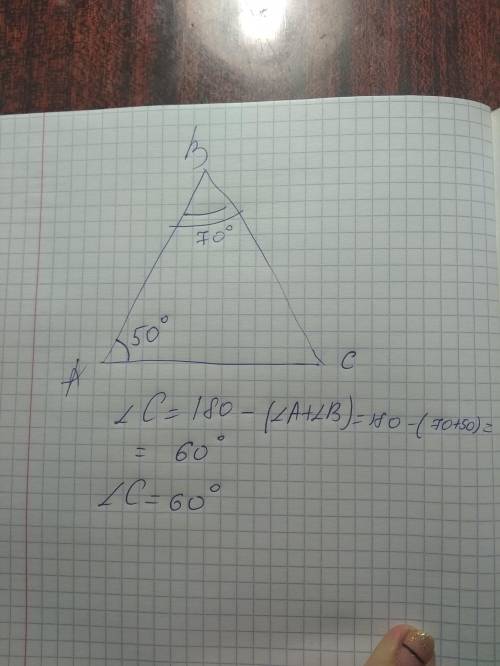 B
70°
50°
A
C
∠C = 180 - (∠A+∠B) = 180 - (70+50) =
= 60°
∠C = 60°